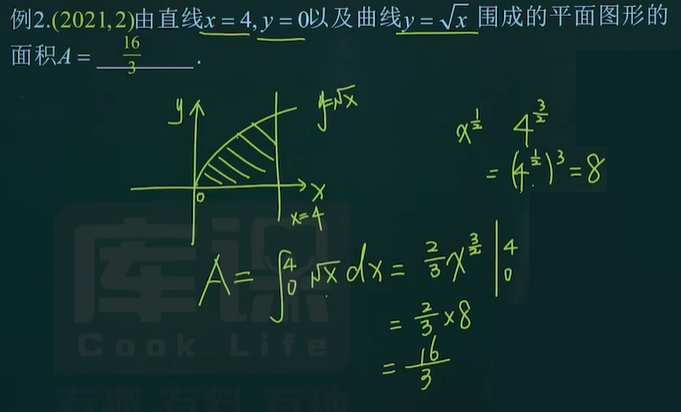 例2.(2021,2)由直线x=4,y=0以及曲线y=√x 围成的平面图形的
面积A= 16/3 .
y
y=√x
0
x
x=4
x^{1/2} 4^{3/2}
=(4^{1/2})^3=8
A=∫_0^4 √x dx = 2/3 x^{3/2} |_0^4
= 2/3 ×8
= 16/3
库课
Cook Life
有趣 有料